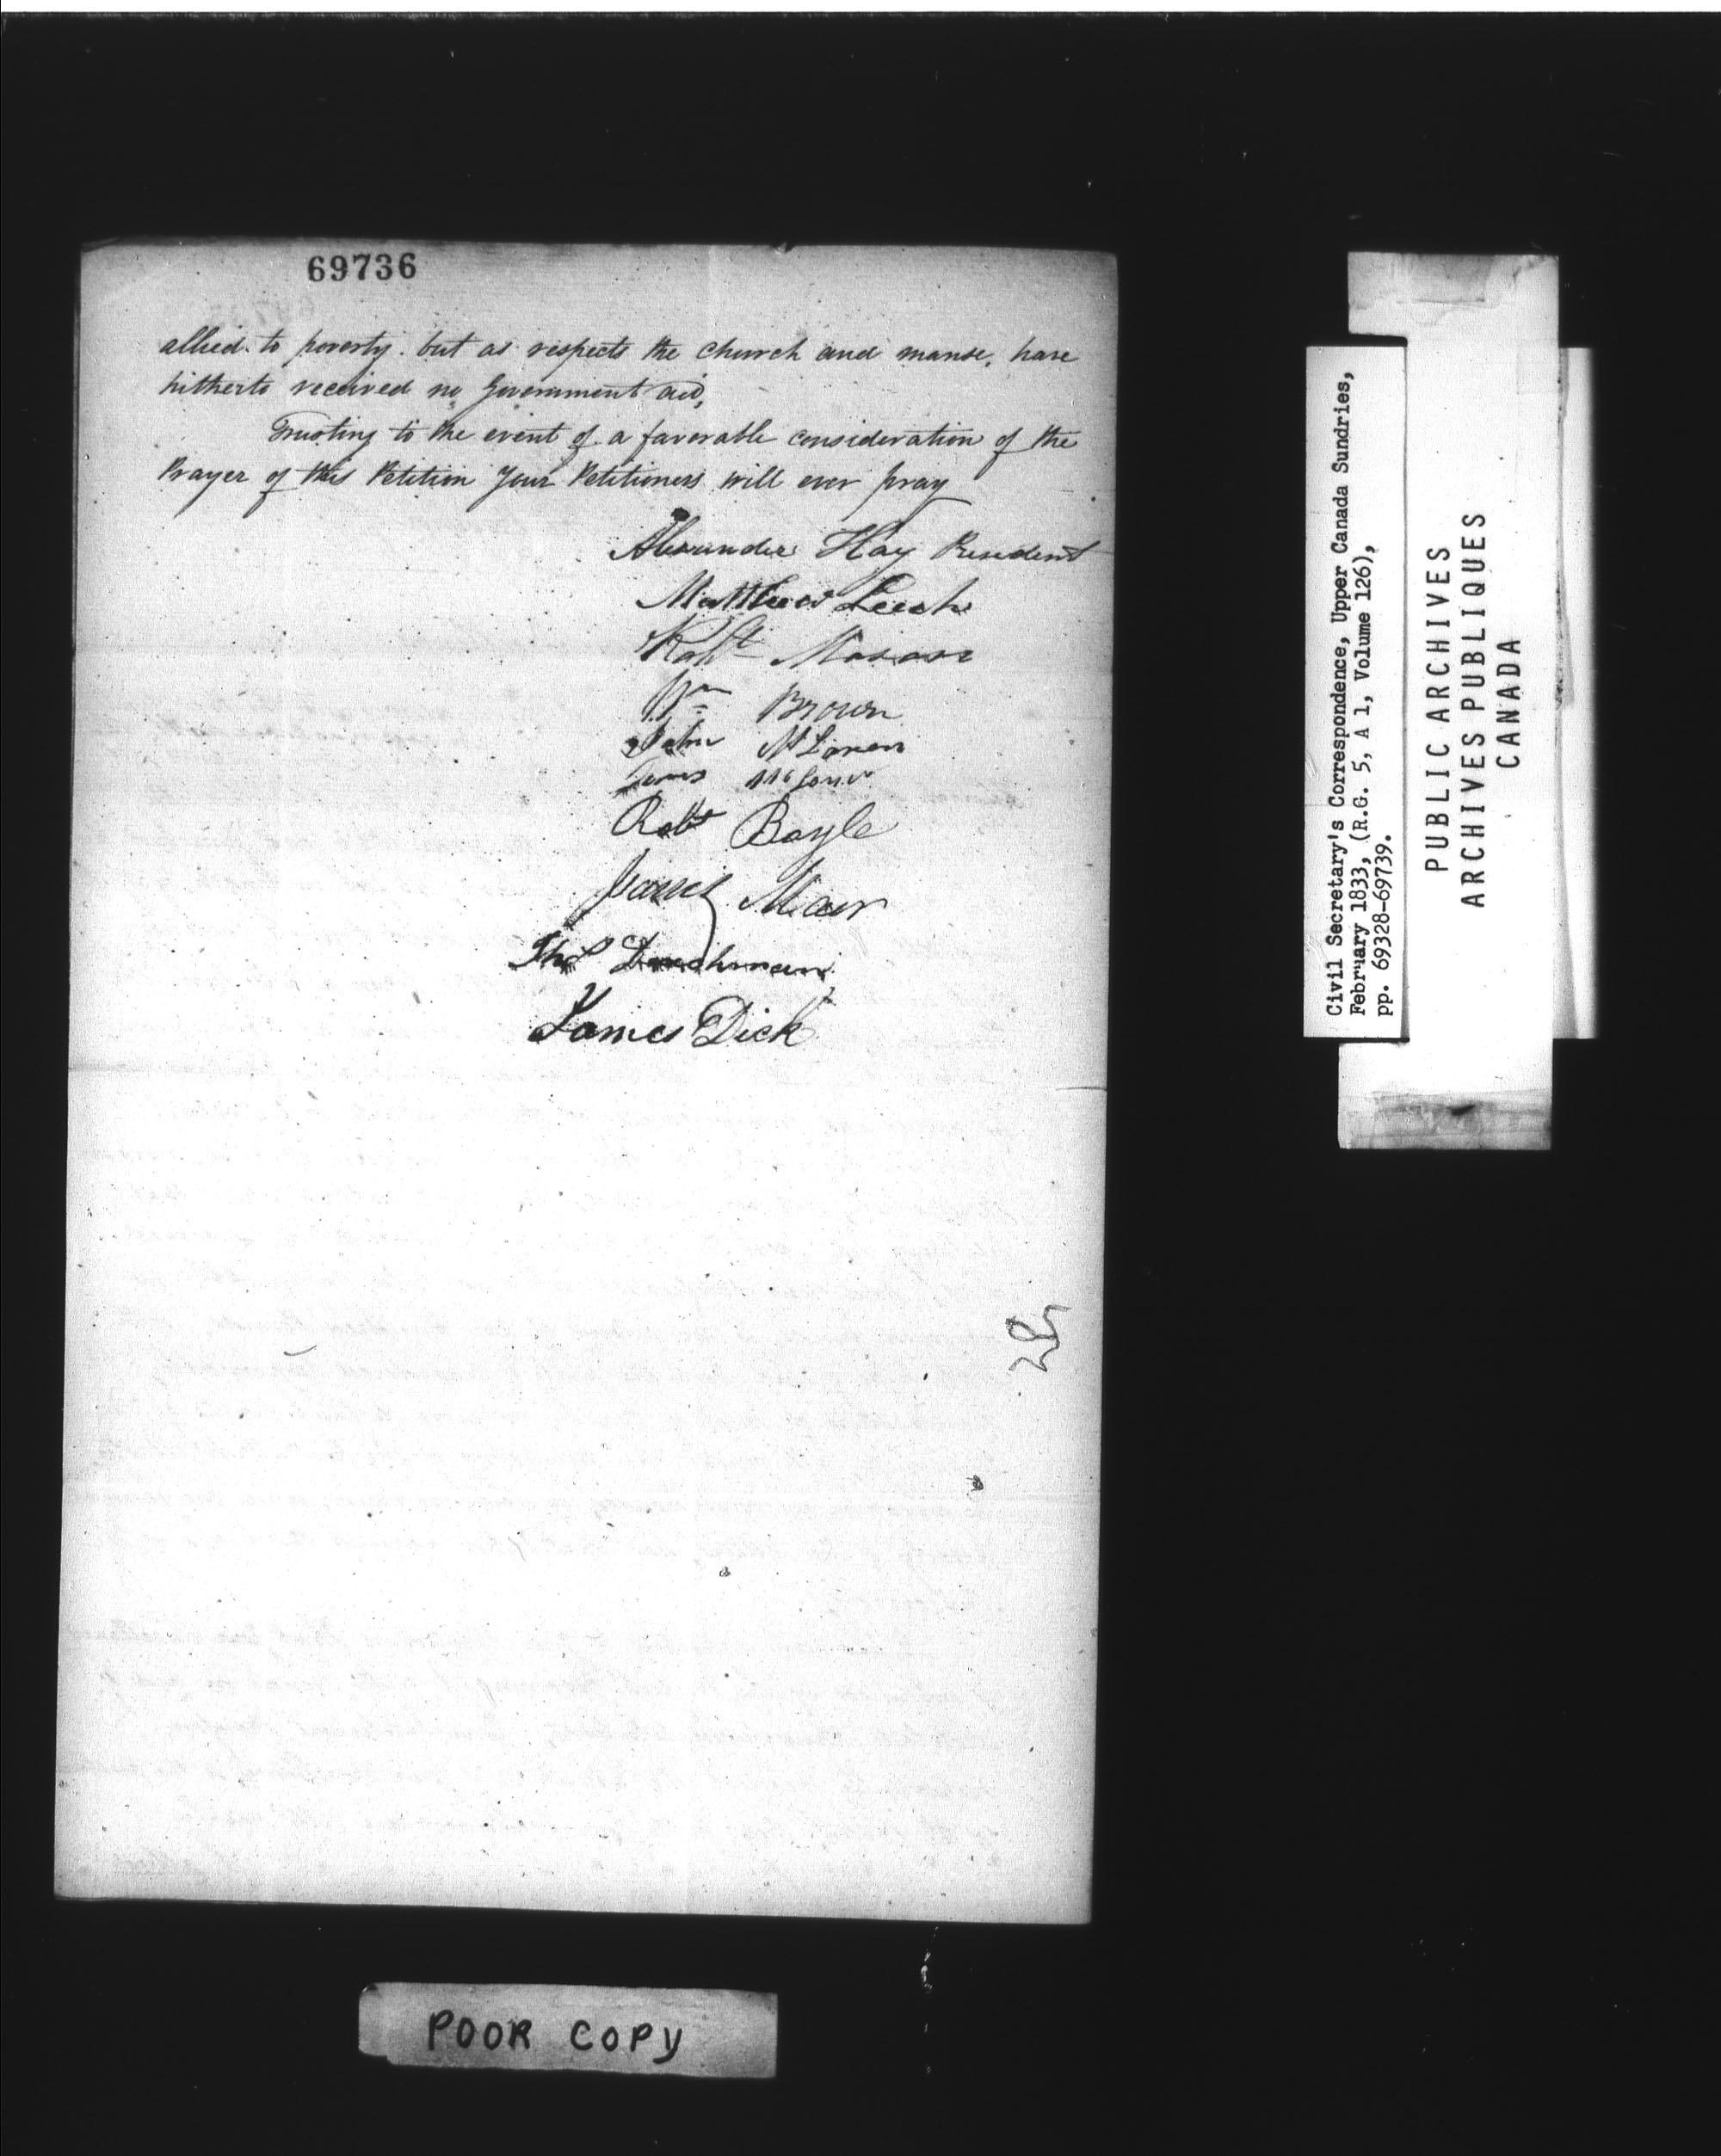 69736
allied to poverty. but as respects the church and manse, have
hitherto received no Government aid,
Trusting to the event of a favorable consideration of the
Prayer of this Petition Your Petitioners will ever pray
Alexander Hay President
Matthew Leech
Robt
Wm Brown
John McLaren
James
Robt Boyle
James Mair
Thos
James Dick
POOR COPY
Civil Secretary's Correspondence, Upper Canada Sundries,
February 1833, (R.G. 5, A 1, Volume 126),
pp. 69328-69739.
PUBLIC ARCHIVES
ARCHIVES PUBLIQUES
CANADA